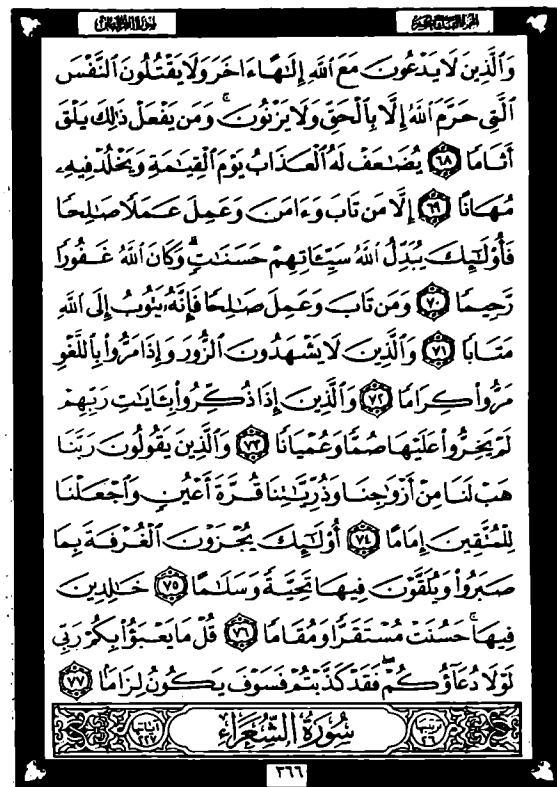 وَٱلَّذِينَ لَا يَدْعُونَ مَعَ ٱللَّهِ إِلَٰهًا ءَاخَرَ وَلَا يَقْتُلُونَ ٱلنَّفْسَ
ٱلَّتِى حَرَّمَ ٱللَّهُ إِلَّا بِٱلْحَقِّ وَلَا يَزْنُونَ ۚ وَمَن يَفْعَلْ ذَٰلِكَ يَلْقَ
أَثَامًا ٦٨ يُضَٰعَفْ لَهُ ٱلْعَذَابُ يَوْمَ ٱلْقِيَٰمَةِ وَيَخْلُدْ فِيهِۦ
مُهَانًا ٦٩ إِلَّا مَن تَابَ وَءَامَنَ وَعَمِلَ عَمَلًا صَٰلِحًا
فَأُو۟لَٰٓئِكَ يُبَدِّلُ ٱللَّهُ سَيِّـَٔاتِهِمْ حَسَنَٰتٍ ۗ وَكَانَ ٱللَّهُ غَفُورًا
رَّحِيمًا ٧٠ وَمَن تَابَ وَعَمِلَ صَٰلِحًا فَإِنَّهُۥ يَتُوبُ إِلَى ٱللَّهِ
مَتَابًا ٧١ وَٱلَّذِينَ لَا يَشْهَدُونَ ٱلزُّورَ وَإِذَا مَرُّوا۟ بِٱللَّغْوِ
مَرُّوا۟ كِرَامًا ٧٢ وَٱلَّذِينَ إِذَا ذُكِّرُوا۟ بِـَٔايَٰتِ رَبِّهِمْ
لَمْ يَخِرُّوا۟ عَلَيْهَا صُمًّا وَعُمْيَانًا ٧٣ وَٱلَّذِينَ يَقُولُونَ رَبَّنَا
هَبْ لَنَا مِنْ أَزْوَٰجِنَا وَذُرِّيَّٰتِنَا قُرَّةَ أَعْيُنٍ وَٱجْعَلْنَا
لِلْمُتَّقِينَ إِمَامًا ٧٤ أُو۟لَٰٓئِكَ يُجْزَوْنَ ٱلْغُرْفَةَ بِمَا
صَبَرُوا۟ وَيُلَقَّوْنَ فِيهَا تَحِيَّةً وَسَلَٰمًا ٧٥ خَٰلِدِينَ
فِيهَا ۚ حَسُنَتْ مُسْتَقَرًّا وَمُقَامًا ٧٦ قُلْ مَا يَعْبَؤُا۟ بِكُمْ رَبِّى
لَوْلَا دُعَآؤُكُمْ ۖ فَقَدْ كَذَّبْتُمْ فَسَوْفَ يَكُونُ لِزَامًۢا ٧٧
ترتيبها ٢٦ سُورَةُ الشُّعَرَاءِ آياتها ٢٢٧
٣٦٦